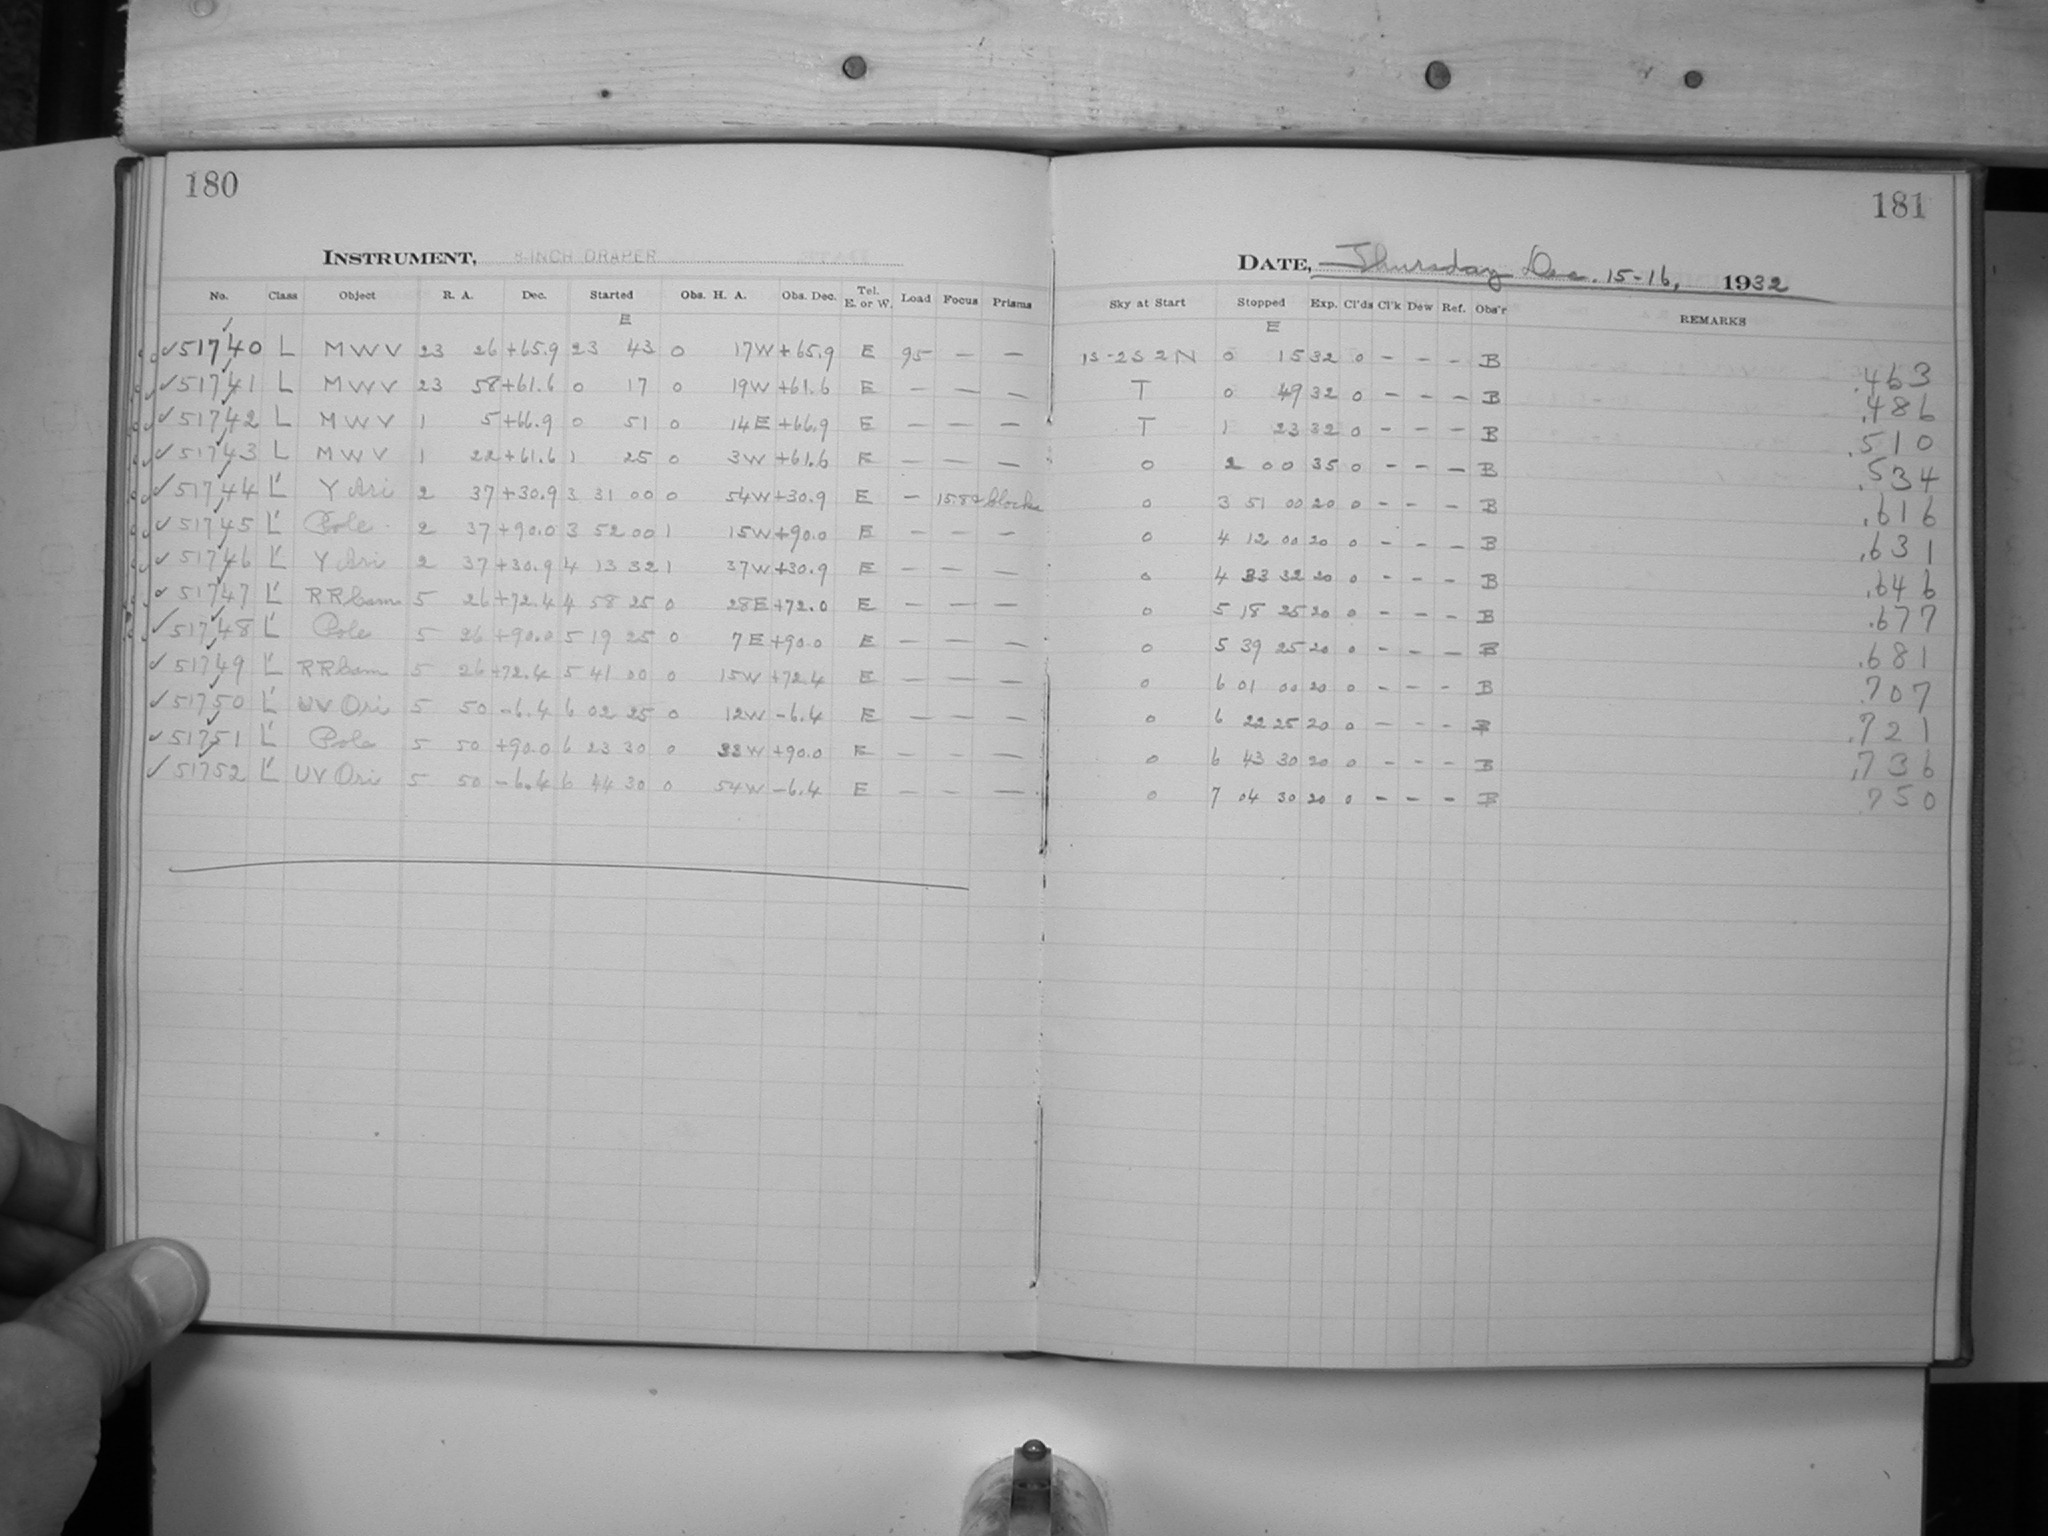 180
INSTRUMENT, 8-INCH DRAPER
No. Class Object R. A. Dec. Started Obs. H. A. Obs. Dec. Tel. E. or W. Load Focus Prisms
E
✓51740 L M W V 23 26 +65.9 23 43 0 17W +65.9 E 95 — —
✓51741 L M W V 23 58 +61.6 0 17 0 19W +61.6 E — — —
✓51742 L M W V 1 5 +66.9 0 51 0 14E +66.9 E — — —
✓51743 L M W V 1 22 +61.6 1 25 0 3W +61.6 E — — —
✓51744 L' Y Ari 2 37 +30.9 3 31 00 0 54W +30.9 E — 15.82 blocks
✓51745 L' Pole 2 37 +90.0 3 52 00 1 15W +90.0 E — — —
✓51746 L' Y Ari 2 37 +30.9 4 13 32 1 37W +30.9 E — — —
✓51747 L' RR Cam 5 26 +72.4 4 58 25 0 28E +72.0 E — — —
✓51748 L' Pole 5 26 +90.0 5 19 25 0 7E +90.0 E — — —
✓51749 L' RR Cam 5 26 +72.4 5 41 00 0 15W +72.4 E — — —
✓51750 L' UV Ori 5 50 -6.4 6 02 25 0 12W -6.4 E — — —
✓51751 L' Pole 5 50 +90.0 6 23 30 0 33W +90.0 E — — —
✓51752 L' UV Ori 5 50 -6.4 6 44 30 0 54W -6.4 E — — —
181
DATE, Thursday Dec. 15-16, 1932
Sky at Start Stopped Exp. Cl'ds Cl'k Dew Ref. Obs'r REMARKS
E
1S-2S 2N 0 15 32 0 - - - B .463
T 0 49 32 0 - - - B .486
T 1 23 32 0 - - - B .510
0 2 00 35 0 - - - B .534
0 3 51 00 20 0 - - - B .616
0 4 12 00 20 0 - - - B .631
0 4 33 32 20 0 - - - B .646
0 5 18 25 20 0 - - - B .677
0 5 39 25 20 0 - - - B .681
0 6 01 00 20 0 - - - B .707
0 6 22 25 20 0 - - - B .721
0 6 43 30 20 0 - - - B .736
0 7 04 30 20 0 - - - B .750